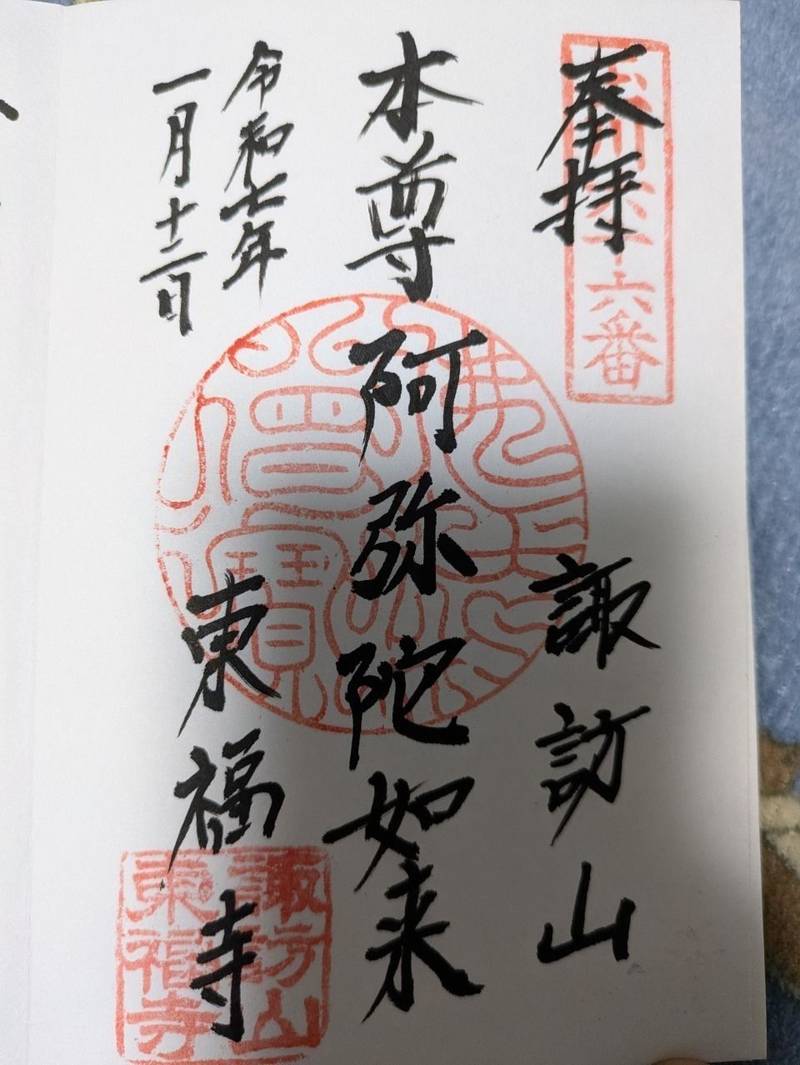 奉拝
六番
諏訪山
本尊 阿弥陀如来
佛法
僧寶
令和七年
一月十二日
東福寺
諏訪山
東福寺